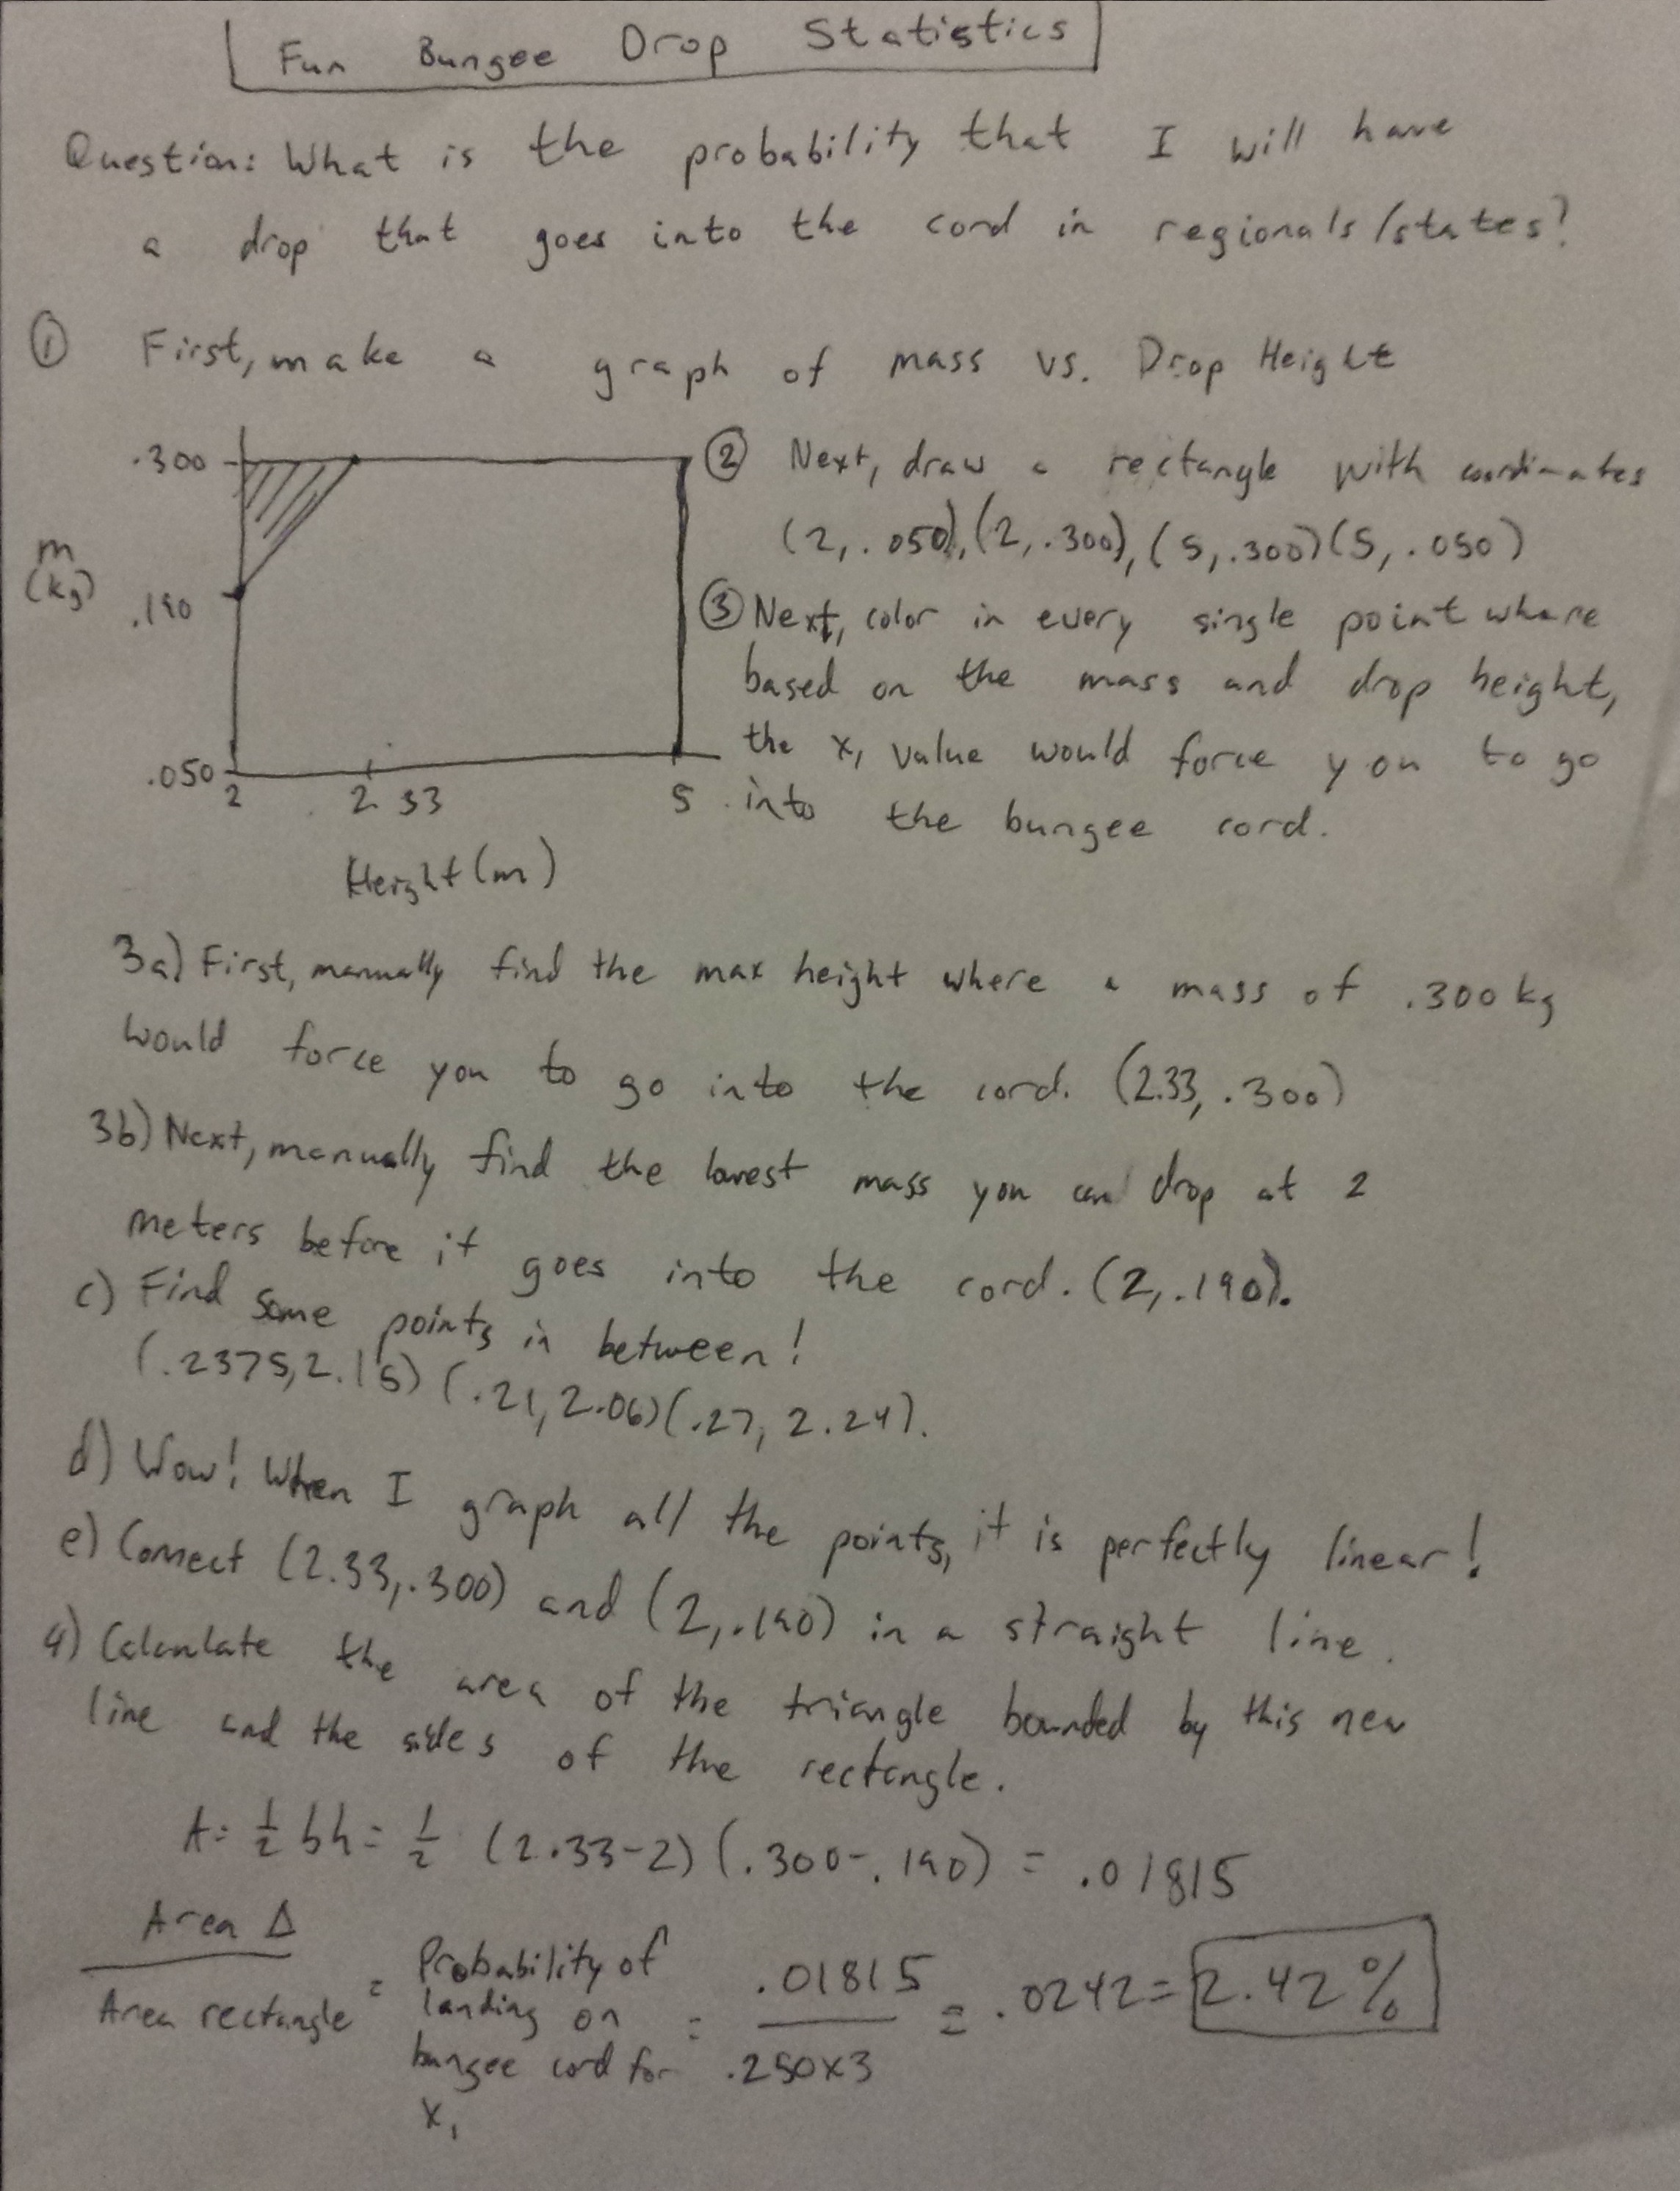 Fun Bungee Drop Statistics
Question: What is the probability that I will have
a drop that goes into the cord in regionals/states?
① First, make a graph of mass vs. Drop Height
.300
m
(kg)
.190
.050
2 2.33 5
Height (m)
② Next, draw a rectangle with coordinates
(2,.050),(2,.300),(5,.300)(5,.050)
③ Next, color in every single point where
based on the mass and drop height,
the x, value would force you to go
into the bungee cord.
3a) First, manually find the max height where a mass of .300 kg
would force you to go into the cord. (2.33, .300)
3b) Next, manually find the lowest mass you can drop at 2
meters before it goes into the cord. (2, .190).
c) Find some points in between!
(.2375, 2.15) (.21, 2.06) (.27, 2.24).
d) Wow! When I graph all the points, it is perfectly linear!
e) Connect (2.33, .300) and (2, .190) in a straight line.
4) Calculate the area of the triangle bounded by this new
line and the sides of the rectangle.
A = ½ bh = ½ (2.33-2) (.300-.190) = .01815
Area Δ / Area rectangle = Probability of landing on bungee cord for x₁ = .01815 / .250x3 = .0242 = 2.42%